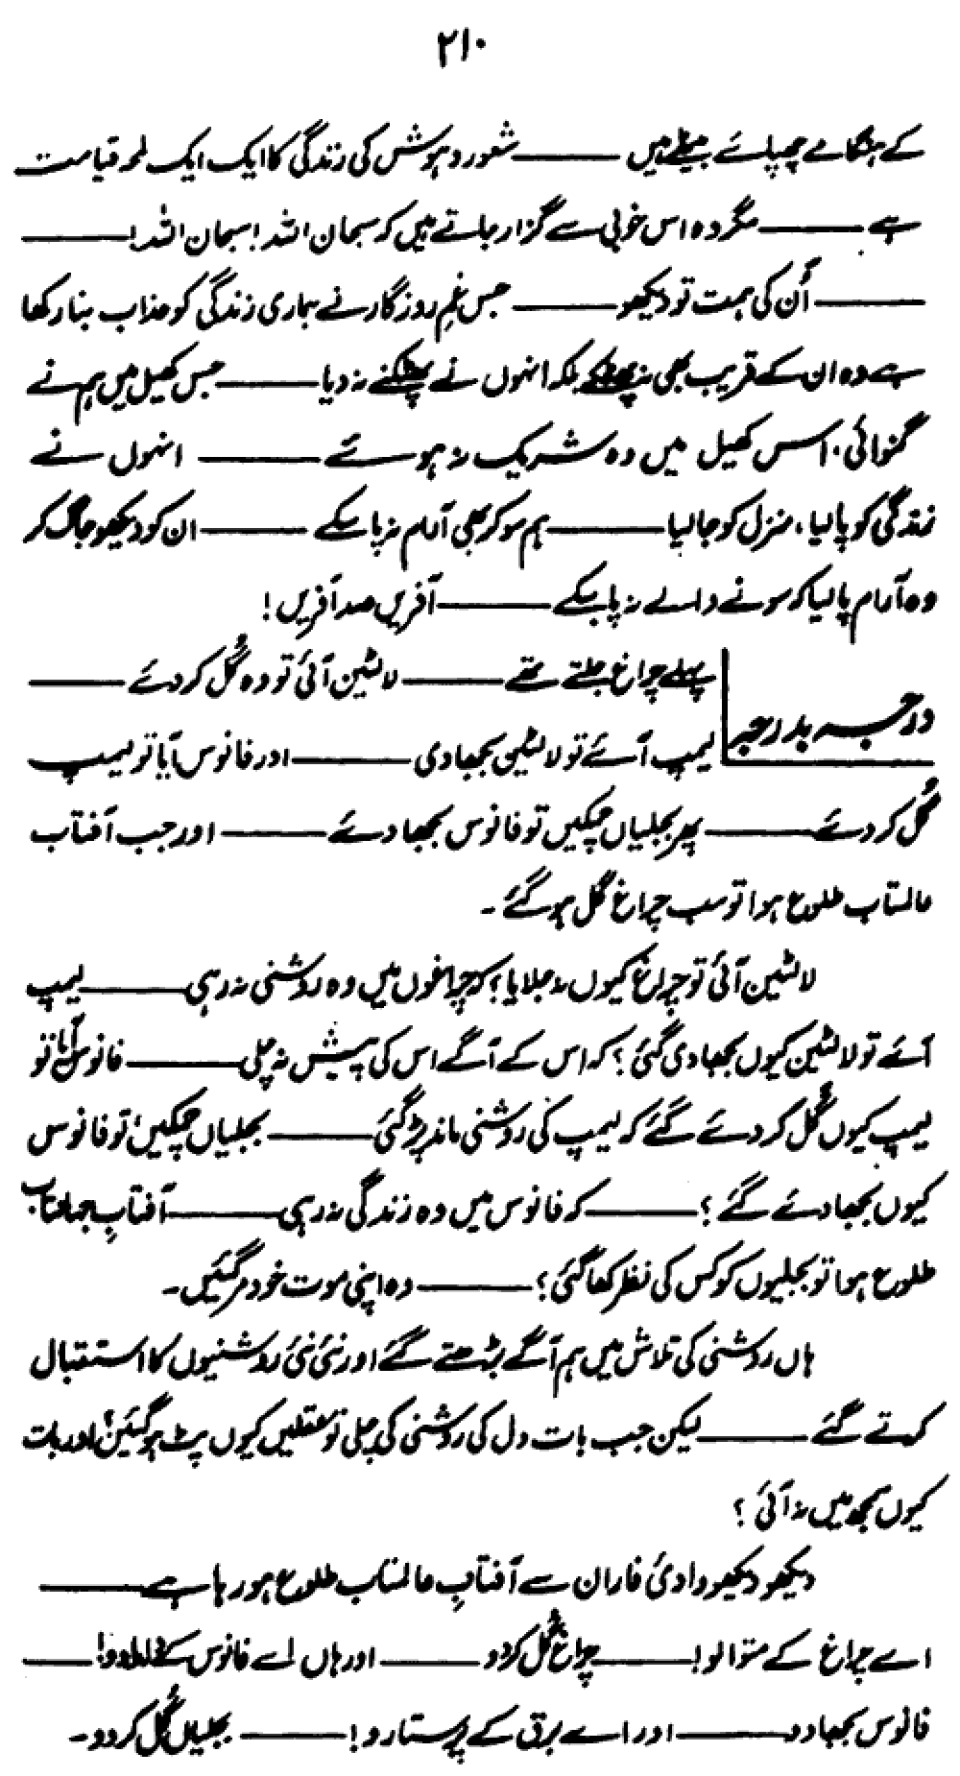 ۲۱۰
کے ہنگامے چھپائے بیٹھے ہیں ——— شعور و ہوش کی زندگی کا ایک ایک لمحہ قیامت
ہے ——— مگر وہ اس خوبی سے گزار جاتے ہیں کہ سبحان اللہ! سبحان اللہ! ———
——— اُن کی ہمت تو دیکھو ——— جس غمِ روزگار نے ہماری زندگی کو عذاب بنا رکھا
ہے وہ ان کے قریب بھی نہ پھٹکے بلکہ انہوں نے پھٹکنے نہ دیا ——— جس کھیل میں ہم نے
گنوائی، اس کھیل میں وہ شریک نہ ہوئے ——— انہوں نے
زندگی کو پالیا، منزل کو جالیا ——— ہم سو کر بھی آرام نہ پا سکے ——— ان کو دیکھو جاگ کر
وہ آرام پالیا کہ سونے والے نہ پا سکے ——— آفریں صد آفریں!
درجہ بدرجہ
پہلے چراغ جلتے تھے ——— لالٹین آئی تو وہ گُل کر دئے ———
لیمپ آئے تو لالٹین بجھا دی ——— اور فانوس آیا تو لیمپ
گُل کر دئے ——— پھر بجلیاں چمکیں تو فانوس بجھا دئے ——— اور جب آفتاب
عالمتاب طلوع ہوا تو سب چراغ گل ہو گئے۔
لالٹین آئی تو چراغ کیوں نہ جلایا؟ کہ چراغوں میں وہ روشنی نہ رہی ——— لیمپ
آئے تو لالٹین کیوں بجھا دی گئی؟ کہ اس کے آگے اس کی پیش نہ چلی ——— فانوس آیا تو
لیمپ کیوں گُل کر دئے گئے کہ لیمپ کی روشنی ماند پڑ گئی ——— بجلیاں چمکیں تو فانوس
کیوں بجھا دئے گئے؟ ——— کہ فانوس میں وہ زندگی نہ رہی ——— آفتابِ جہانتاب
طلوع ہوا تو بجلیوں کو کس کی نظر کھا گئی؟ ——— وہ اپنی موت خود مر گئیں۔
ہاں روشنی کی تلاش میں ہم آگے بڑھتے گئے اور نئی نئی روشنیوں کا استقبال
کرتے گئے ——— لیکن جب بات دل کی روشنی کی چلی تو عقلیں کیوں پٹ ہو گئیں؟ اور بات
کیوں سمجھ میں نہ آئی؟
دیکھو دیکھو وادیٔ فاران سے آفتابِ عالمتاب طلوع ہو رہا ہے ———
اے چراغ کے متوالو! ——— چراغ گُل کر دو ——— اور ہاں اے فانوس کے دلدادو! ———
فانوس بجھا دو ——— اور اے برق کے پرستارو! ——— بجلیاں گُل کر دو۔